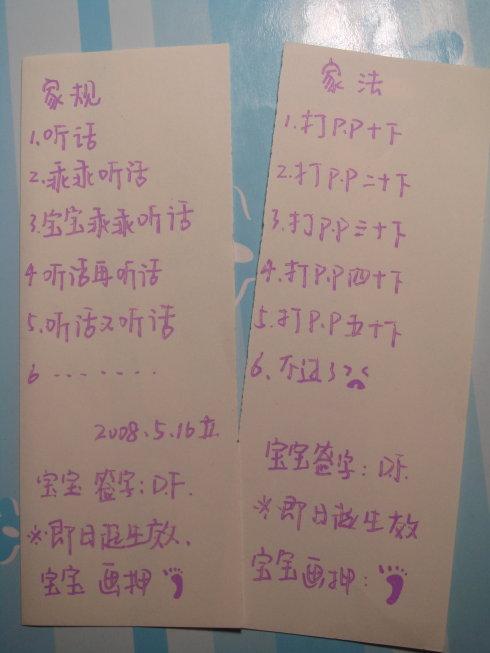 家规
1.听话
2.乖乖听话
3.宝宝乖乖听话
4.听话再听话
5.听话又听话
6.......
2008.5.16立
宝宝签字:D.F.
※即日起生效.
宝宝画押
家法
1.打P.P十下
2.打P.P二十下
3.打P.P三十下
4.打P.P四十下
5.打P.P五十下
6.不
宝宝签字:D.F.
※即日起生效
宝宝画押: